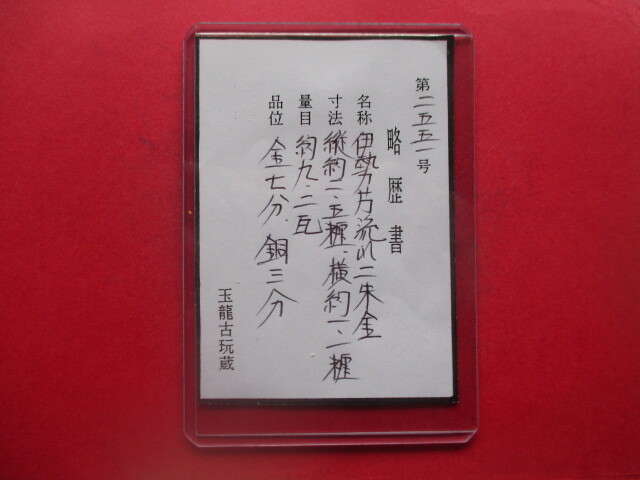 第二五五一号
略歴書
名称 伊勢片流れ二朱金
寸法 縦約一・五糎、横約一・一糎
量目 約九・二瓦
品位 金七分、銅三分
玉龍古玩蔵